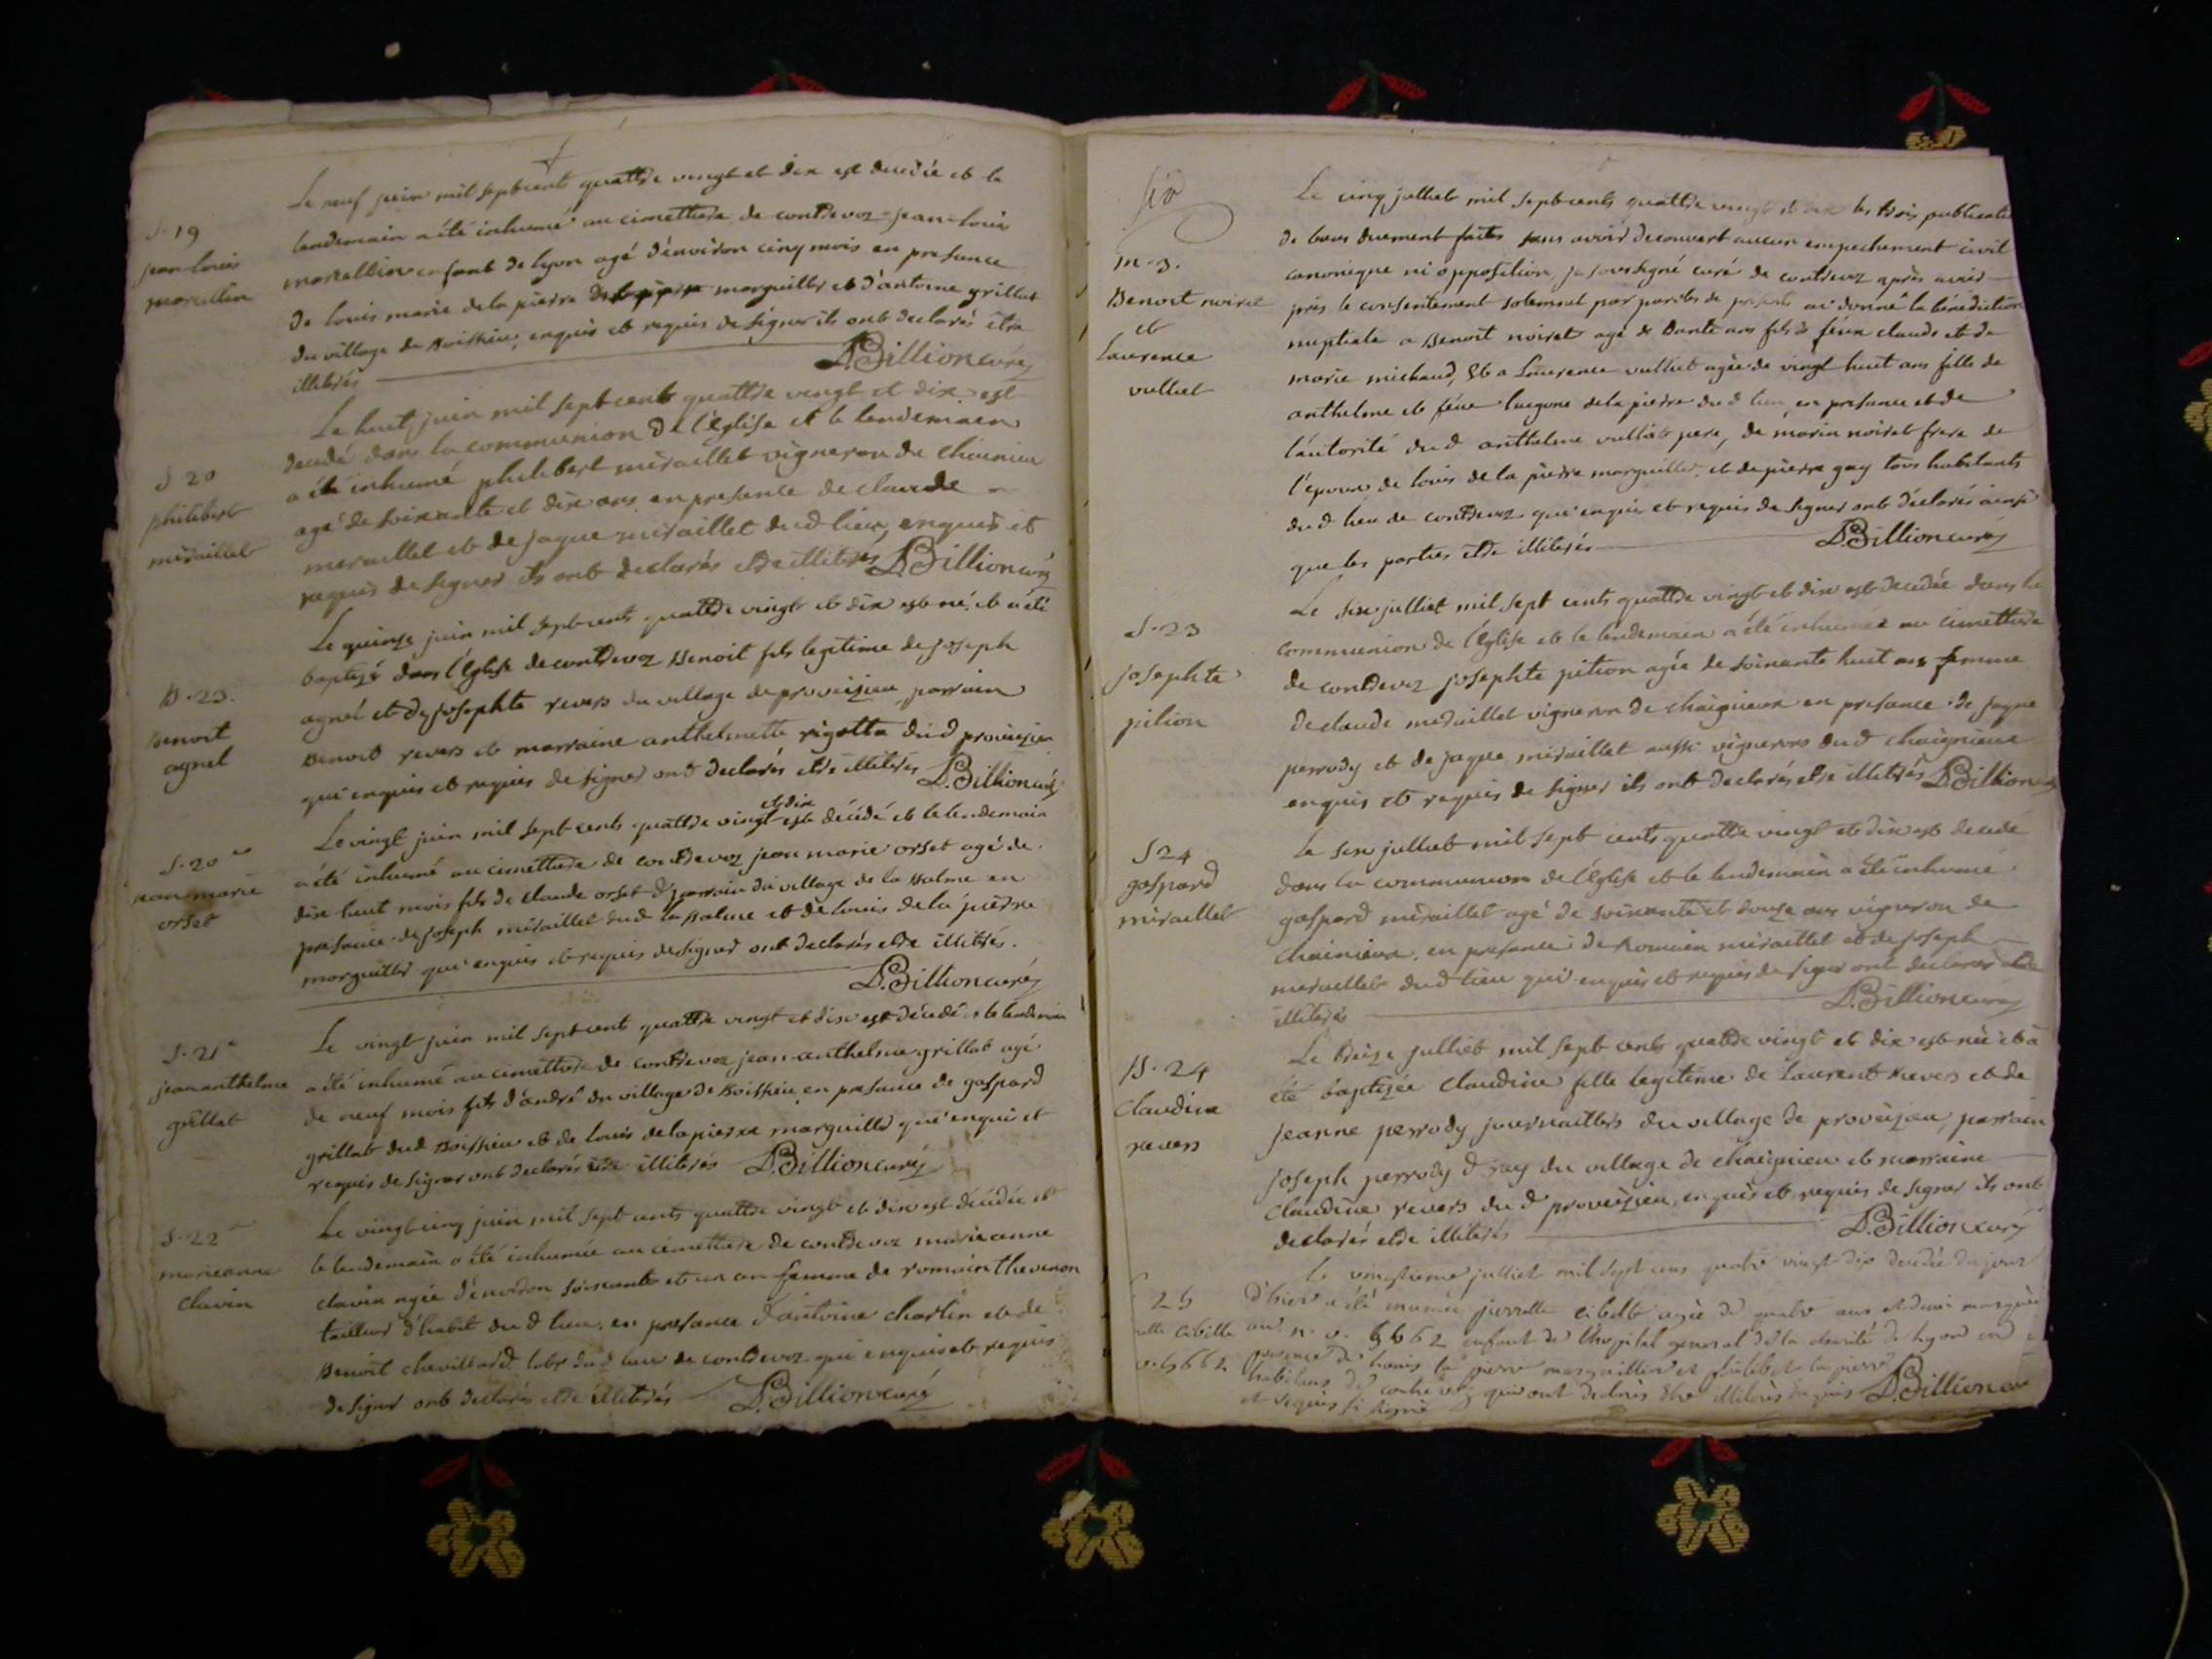 S. 19
jean-louis
marcellin
Le neuf juin mil sept cents quattre vingt et dix est decedée et le
lendemain a été inhumé au cimettiere de contrevoz jean-louis
marcellin enfant de lyon agé d'environ cinq mois en presance
de louis marie de la pierre marguiller et d'antoine grillat
du village de Boissieu, enquis et requis de signer ils ont declarés être
illiterés D. Billion curé
S 20
philibert
miraillet
Le huit juin mil sept cents quattre vingt et dix est
decedé dans la communion de l'église et le lendemain
a été inhumé philibert miraillet vigneron de cheinieu
agé de soixante et dix ans en presence de claude
meraillet et de jaque miraillet dud lieu, enquis et
requis de signer ils ont declarés etre illiterés D. Billion curé
B. 23.
Benoit
agnel
Le quinze juin mil sept cents quattre vingt et dix est né, et a été
baptizé dans l'église de contrevoz Benoit fils legitime de joseph
agnel et de josephte revers du village de proveizieu, parrain
Benoit revers et marraine anthelmette rigotta dud proveizieu
qui enquis et requis de signer ont declarés etre illiterés D. Billion curé
S. 20
jean marie
orset
et dix
Le vingt juin mil sept cents quattre vingt est décédé et le lendemain
a été inhumé au cimettiere de contrevoz jean marie orset agé de
dix huit mois fils de claude orset du village de la Balme en
presance de joseph miraillet dud la Balme et de louis de la pierre
marguiller qui enquis et requis de signer ont declarés etre illiterés.
D. Billion curé
S. 21
jean anthelme
grillat
Le vingt juin mil sept cents quattre vingt et dix est décédé et le lendemain
a été inhumé au cimettiere de contrevoz jean-anthelme grillat agé
de neuf mois fils d'andré du village de Boissieu, en presance de gaspard
grillat dud Boissieu et de louis de la pierre marguiller qui enquis et
requis de signer ont declarés etre illiterés D. Billion curé
S. 22
marieanne
clavin
Le vingt cinq juin mil sept cents quattre vingt et dix est décédée et
le lendemain a été inhumée au cimettiere de contrevoz marieanne
clavin agée d'environ soixante et un an femme de romain thevenon
tailleur d'habit dud lieu, en presance d'antoine charlin et de
Benoit chevillard labr dud lieu de contrevoz qui enquis et requis
de signer ont declarés etre illiterés D. Billion curé
m. 3.
Benoit noiret
et
Laurence
vulliet
Le cinq julliet mil sept cents quattre vingt et dix les trois publications
de bans duement faites sans avoir decouvert aucun empechement civil
canonique ni opposition, je soussigné curé de contrevoz après avoir
pris le consentement solemnel par paroles de presents ai donné la bénédiction
nuptiale a Benoit noiret agé de trente ans fils de féux claude et de
marie michaud, et a Laurence vulliet agée de vingt huit ans fille de
anthelme et féue de la pierre dud lieu, en presance et de
l'autorité dud anthelme vulliet pere, de marin noiret frere de
l'epoux de louis de la pierre marguiller, et de pierre gay tous habitants
dud lieu de contrevoz qui enquis et requis de signer ont déclarés ainsi
que les parties etre illiterés D. Billion curé
S. 23
josephte
pition
Le six julliet mil sept cents quattre vingt et dix est decedée dans la
communion de l'église et le lendemain a été inhumée au cimettiere
de contrevoz josephte pition agée de soixante huit ans femme
de claude meraillet vigneron de chaignieux en presance de jaque
perrody et de jaque miraillet aussi vignerons dud chaignieux
enquis et requis de signer ils ont declarés etre illiterés D. Billion curé
S 24
gaspard
miraillet
Le six julliet mil sept cents quattre vingt et dix est decedé
dans la communion de l'église et le lendemain a été inhumé
gaspard miraillet agé de soixante et douze ans vigneron de
chainieux, en presance de Romain miraillet et de joseph
meraillet dud lieu qui enquis et requis de signer ont declarés etre
illiterés D. Billion curé
B. 24
claudine
revers
Le treize julliet mil sept cents quattre vingt et dix est née et a
été baptizée claudine fille legitime de Laurent revers et de
jeanne perrody journailliers du village de proveizieu, parrain
joseph perrody du village de chaignieu et marraine
claudine revers dud proveizieu, enquis et requis de signer ils ont
declarés etre illiterés D. Billion curé
25
cibille
5662
Le vingtieme julliet mil sept cens quatre vingt dix decedée du jour
d'hier a été inumée pierrette cibille agée de quatre ans et demi marquée
au n. v. 5662 enfant de l'hopital general de la charité de lyon en
presence de Louis la pierre marguillier et philibert la pierre
habitans de contrevoz qui ont declarés etre illiterés enquis D. Billion curé
et requis